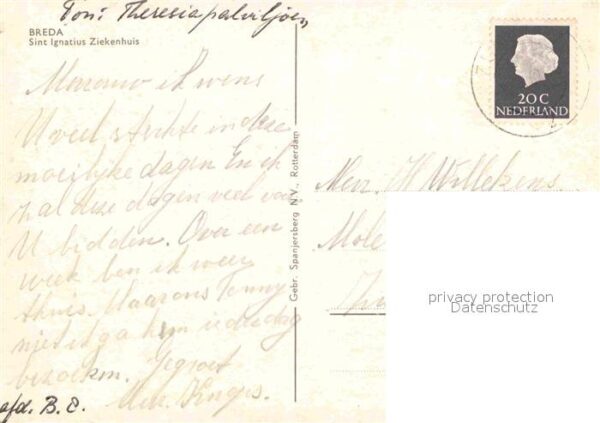 Ton: Theresiapalviljoen
BREDA
Sint Ignatius Ziekenhuis
Mevrouw ik wens
U veel sterkte in deze
moeijlijke dagen En ik
zal deze dagen veel voor
U bidden. Over een
week ben ik weer
thuis. Tonny
niet ik ga hem iedere dag
bezoeken. Gegroet
Mevr.
afd. B. E.
Gebr. Spanjersberg N.V., Rotterdam
20 C
NEDERLAND
Mevr. H Willekens
Mole
privacy protection
Datenschutz